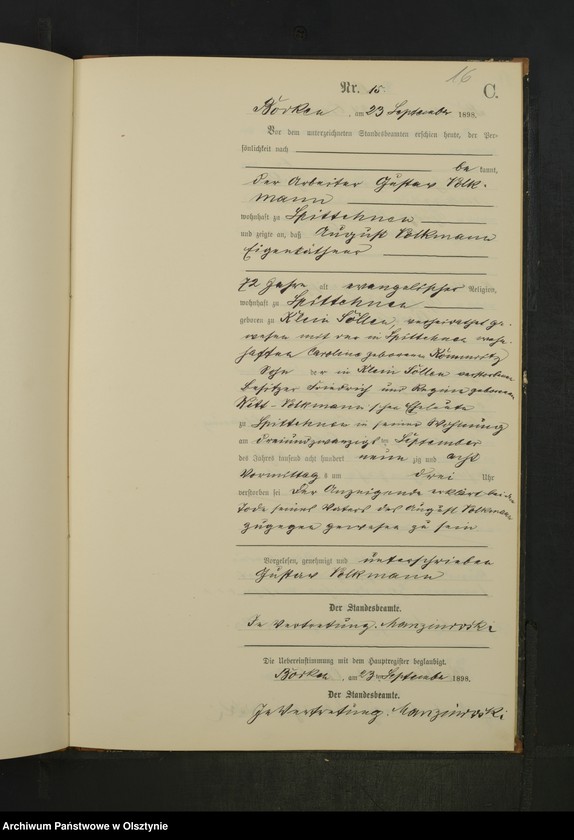 16
Nr. 15.
C.
Börken, am 23 September 1898.
Vor dem unterzeichneten Standesbeamten erschien heute, der Per-
sönlichkeit nach
be kannt,
der Arbeiter Gustav Volk-
mann
wohnhaft zu Spittehnen
und zeigte an, daß August Volkmann
Eigenkäthner
72 Jahre alt evangelischer Religion,
wohnhaft zu Spittehnen
geboren zu Klein Söllen, verheirathet ge-
wesen mit der in Spittehnen wohn-
haften Caroline geborenen
Sohn der in Klein Söllen verstorbenen
Besitzer Friedrich und Regine geborenen
Witt-Volkmann'schen Eheleute
zu Spittehnen in seiner Wohnung
am dreiundzwanzigsten September
des Jahres tausend acht hundert neun zig und acht
Vormittag s um drei Uhr
verstorben sei. Der Anzeigende erklärt bei dem
Tode seines Vaters des August Volkmann
zugegen gewesen zu sein
Vorgelesen, genehmigt und unterschrieben
Gustav Volkmann
Der Standesbeamte.
In Vertretung.
Die Uebereinstimmung mit dem Hauptregister beglaubigt.
Börken, am 23 ten September 1898.
Der Standesbeamte.
In Vertretung.
Archiwum Państwowe w Olsztynie